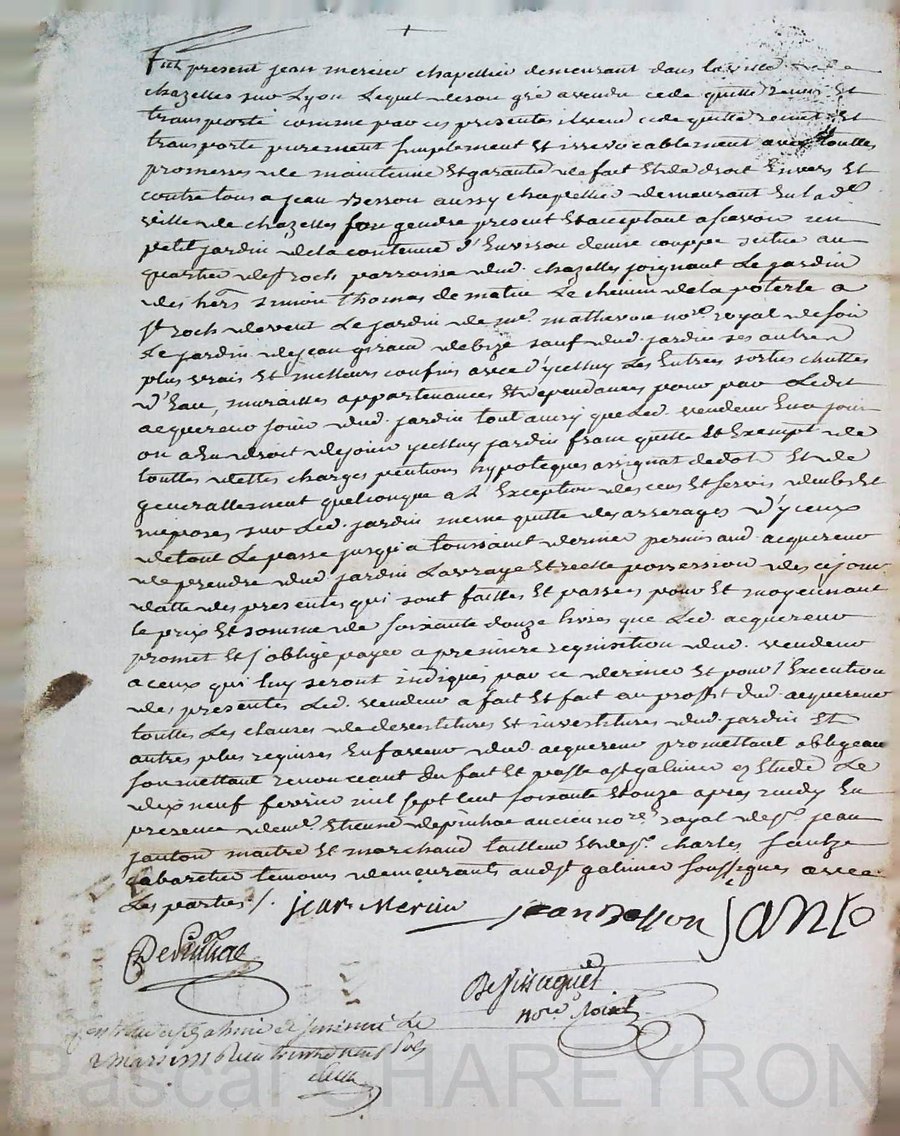 Fut present jean mercier chapellier demeurant dans la ville de
chazelles sur Lyon Lequel de son gré a vendu cede quitté remis Et
transporté comme par ces presentes il vend cede quitte remet Et
transporte purement simplement Et irrevocablement avec touttes
promesses de maintenue Et garantie de fait Et de droit Envers Et
contre tous a jean Besson aussy chapellier demeurant En lad.e
ville de chazelles son gendre present Et acceptant ascavoir un
petit jardin de la contenue d'Environ demie couppe situe au
quartier de St roch parroisse dud. chazelles joignant Le jardin
des hers simon thomas de matin Le chemin de la poterle a
St roch de vent Le jardin de me. mathevon no.re royal de soir
Le jardin de jean giraud de bize sauf dud. jardin ses autres
plus vrais Et meilleurs confins avec d'ycelluy Les Entrées sorties chuttes
d'Eau, murailles appartenances Et dependances pour par Ledit
acquereur jouir dud. jardin tout ainsy que Led. vendeur En a joui
ou a Eu droit de jouir ycelluy jardin franc quitte Et Exempt de
touttes dettes charges pentions hypoteques assignat de dot Et de
generallement quelconque a L'Exception des cens Et servis deubs Et
imposes sur Led. jardin meme quitte des arrerages d'yceux
de tout Le passe jusqu'a toussaint dernier permis aud. acquereur
de prendre dud. jardin La vraye Et reelle possession des ce jour
datte des presentes qui sont faittes Et passees pour Et moyennant
le prix Et somme de soixante douze livres que Led. acquereur
promet Et s'oblige payer a premiere requisition dud. vendeur
a ceux qui luy seront indiqués par ce dernier Et pour l'Execution
des presentes Led. vendeur a fait Et fait au proffit dud. acquereur
touttes Les clauses de devestitures Et investitures dud. jardin Et
autres plus requises En faveur dud. acquereur promettant obligeant
soumettant renonceant &u fait Et passe a St galmier Es Etude Le
dix neuf fevrier mil sept cent soixante Et onze apres midy En
presence de me. Etienne depinhac ancien no.re royal de sr. jean
janton maitre Et marchand tailleur Et de sr. charles
cabaretier temoins demeurants aud. St galmier soussignes avec
Les parties /. jean Mercier jean Besson janto
Depinhac
no.re Roial